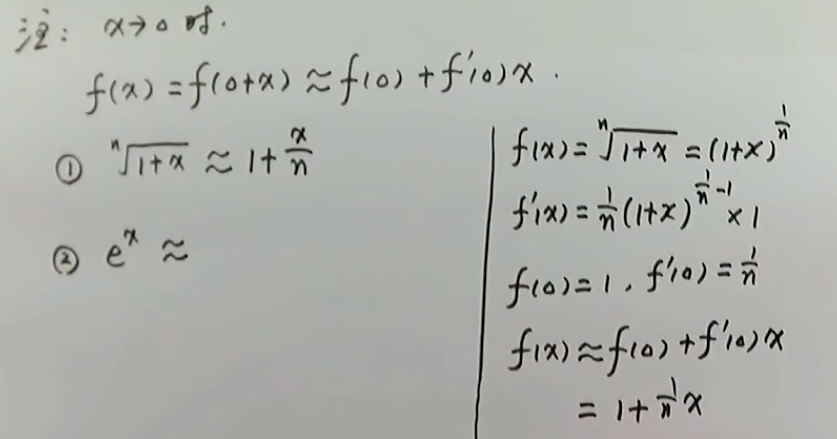 注: x→0 时.
f(x)=f(0+x)≈f(0)+f'(0)x.
① ⁿ√(1+x) ≈ 1+x/n
② eˣ ≈
f(x)=ⁿ√(1+x)=(1+x)^(1/n)
f'(x)=1/n(1+x)^(1/n-1)×1
f(0)=1, f'(0)=1/n
f(x)≈f(0)+f'(0)x
=1+1/n x